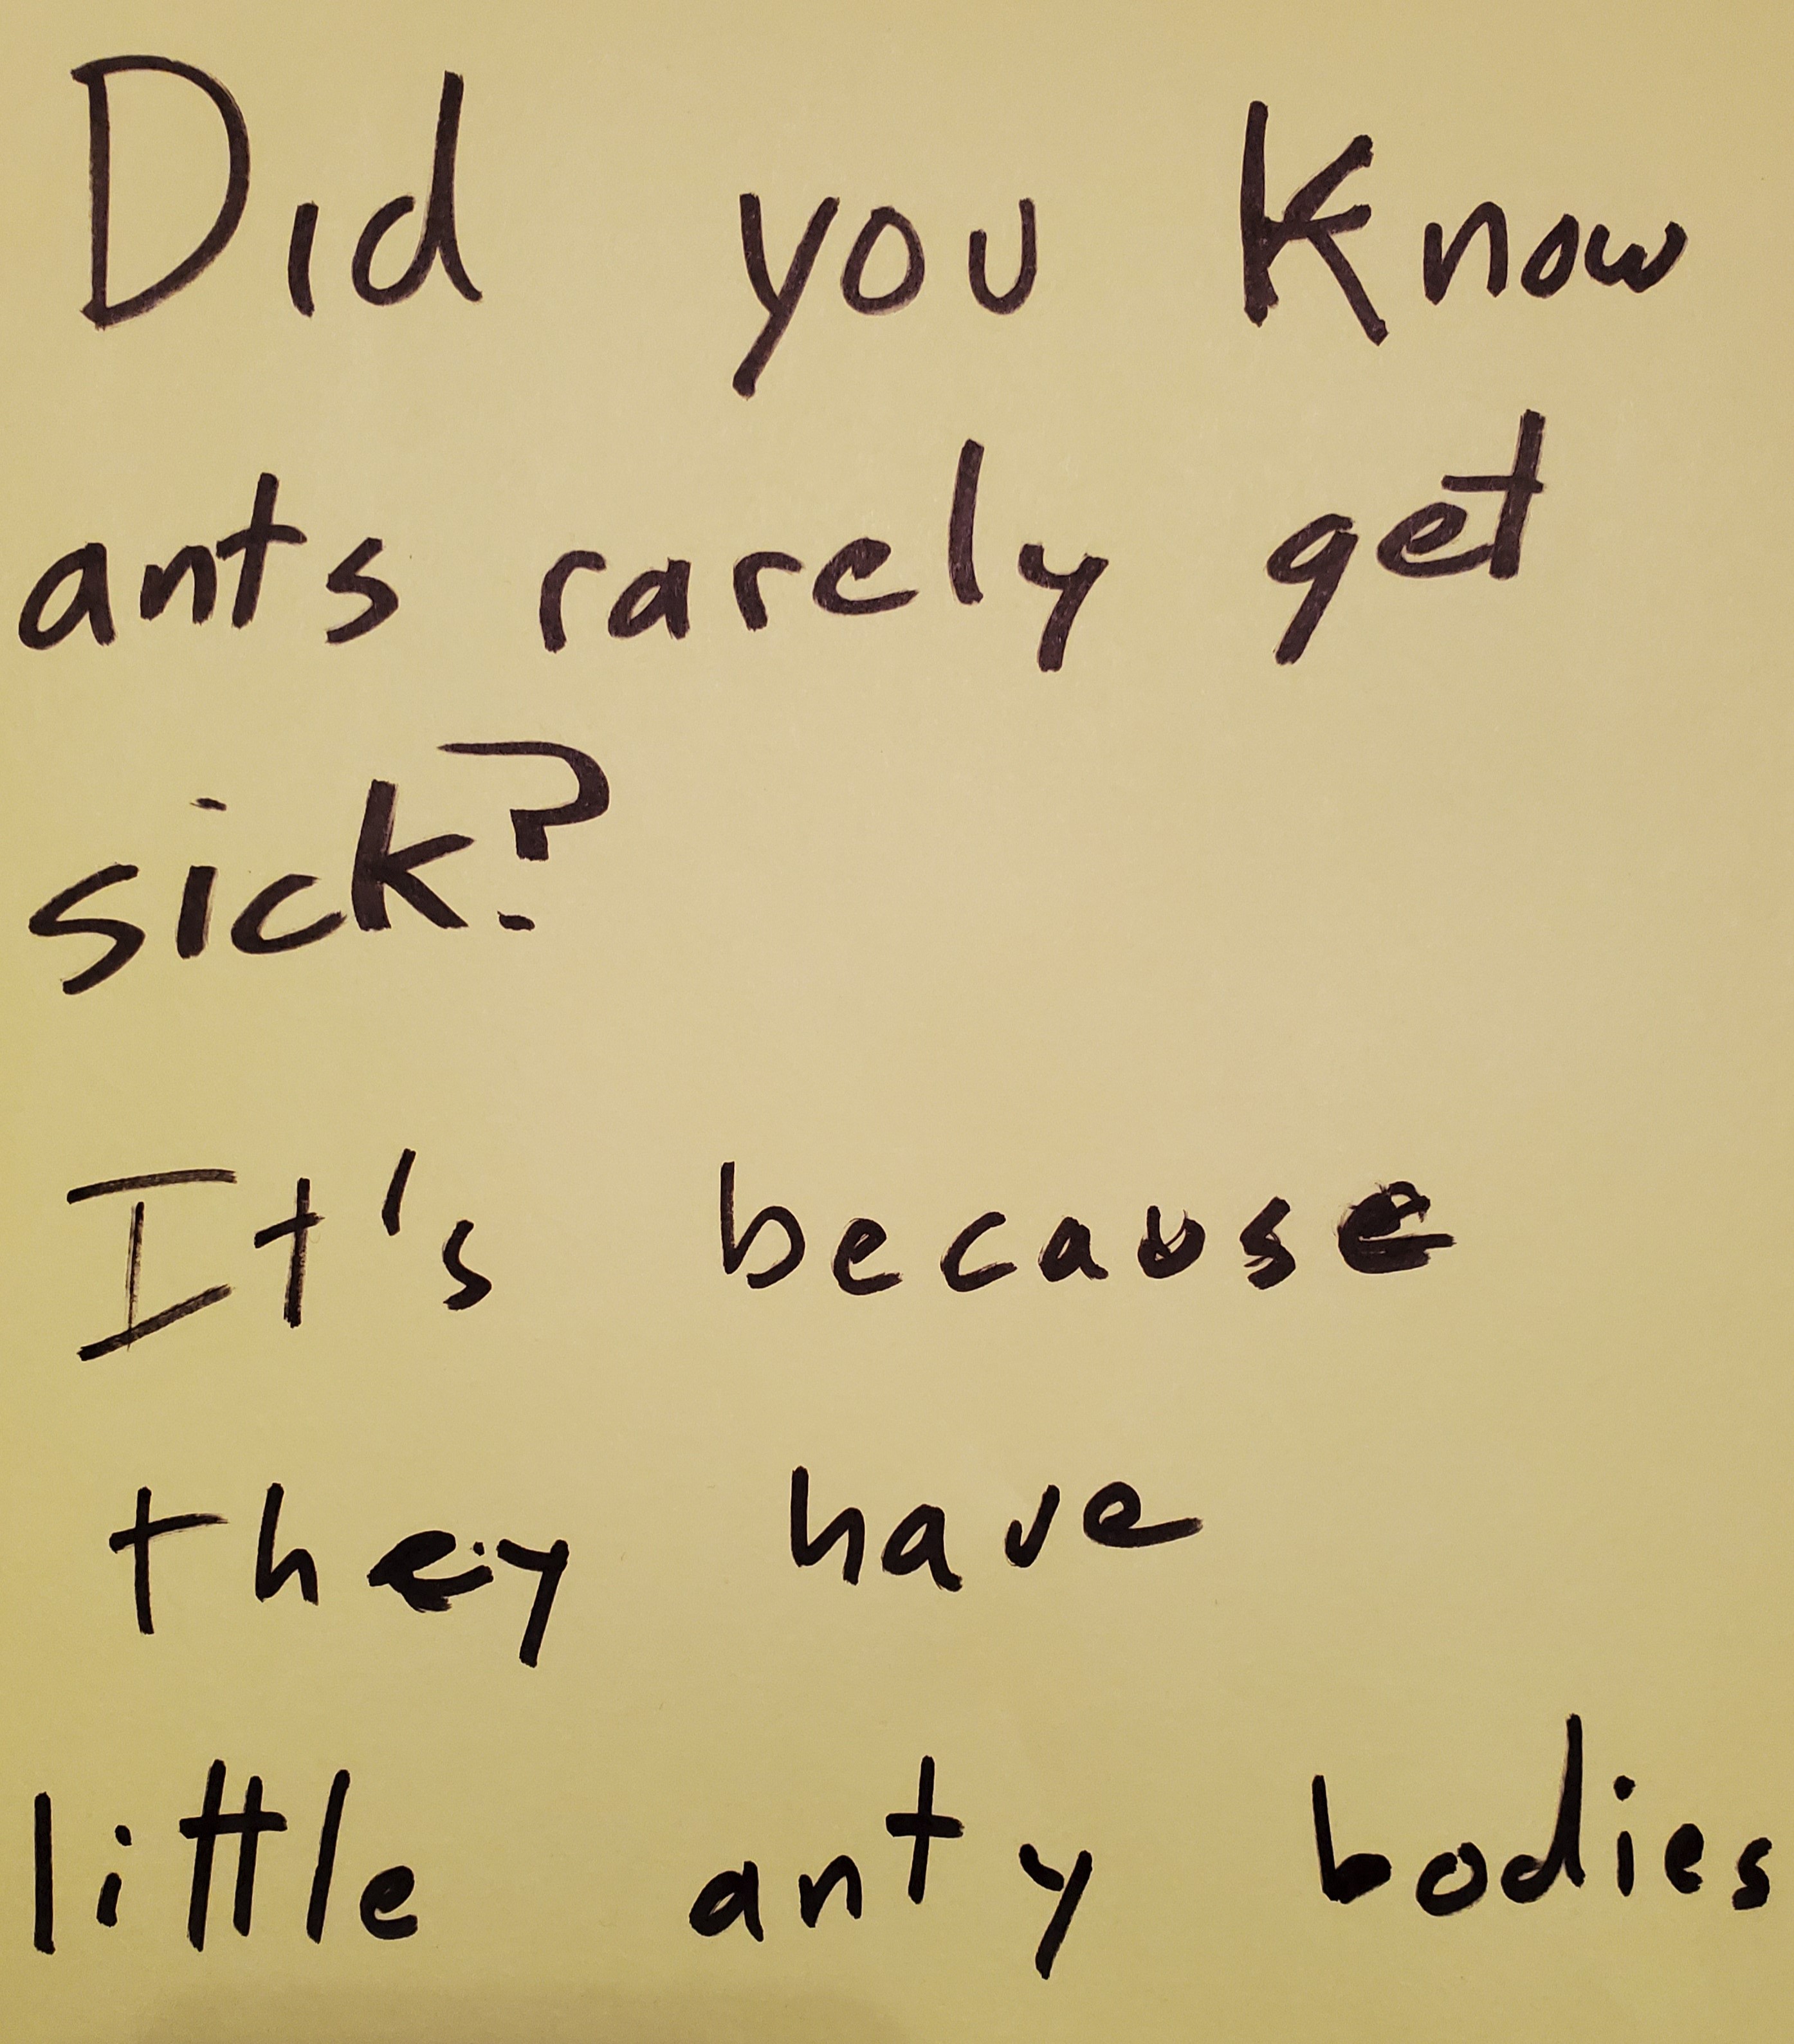 Did you Know
ants rarely get
sick?
It's because
they have
little anty bodies